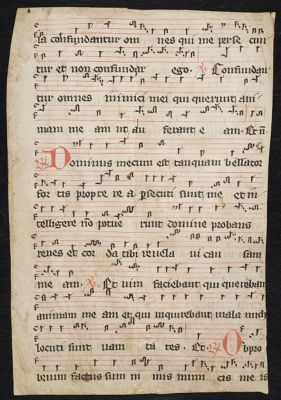 sa confundantur om nes qui me perse cun
tur et non confundar ego. Confundan
tur omnes inimici mei qui querunt ani
mam me am ut au ferant e am. Et n
Dominus mecum est tanquam bellator
for tis propte re a psecuti sunt me et in
telligere no potue runt domine probans
renes et cor da tibi revela vi cau sam
me am. Et vim faciebant qui querebant
animam meam et qui inquirebant mala michi
locuti sunt vani ta tes. Et Obpro
brium factus sum ni mis inimi cis me is